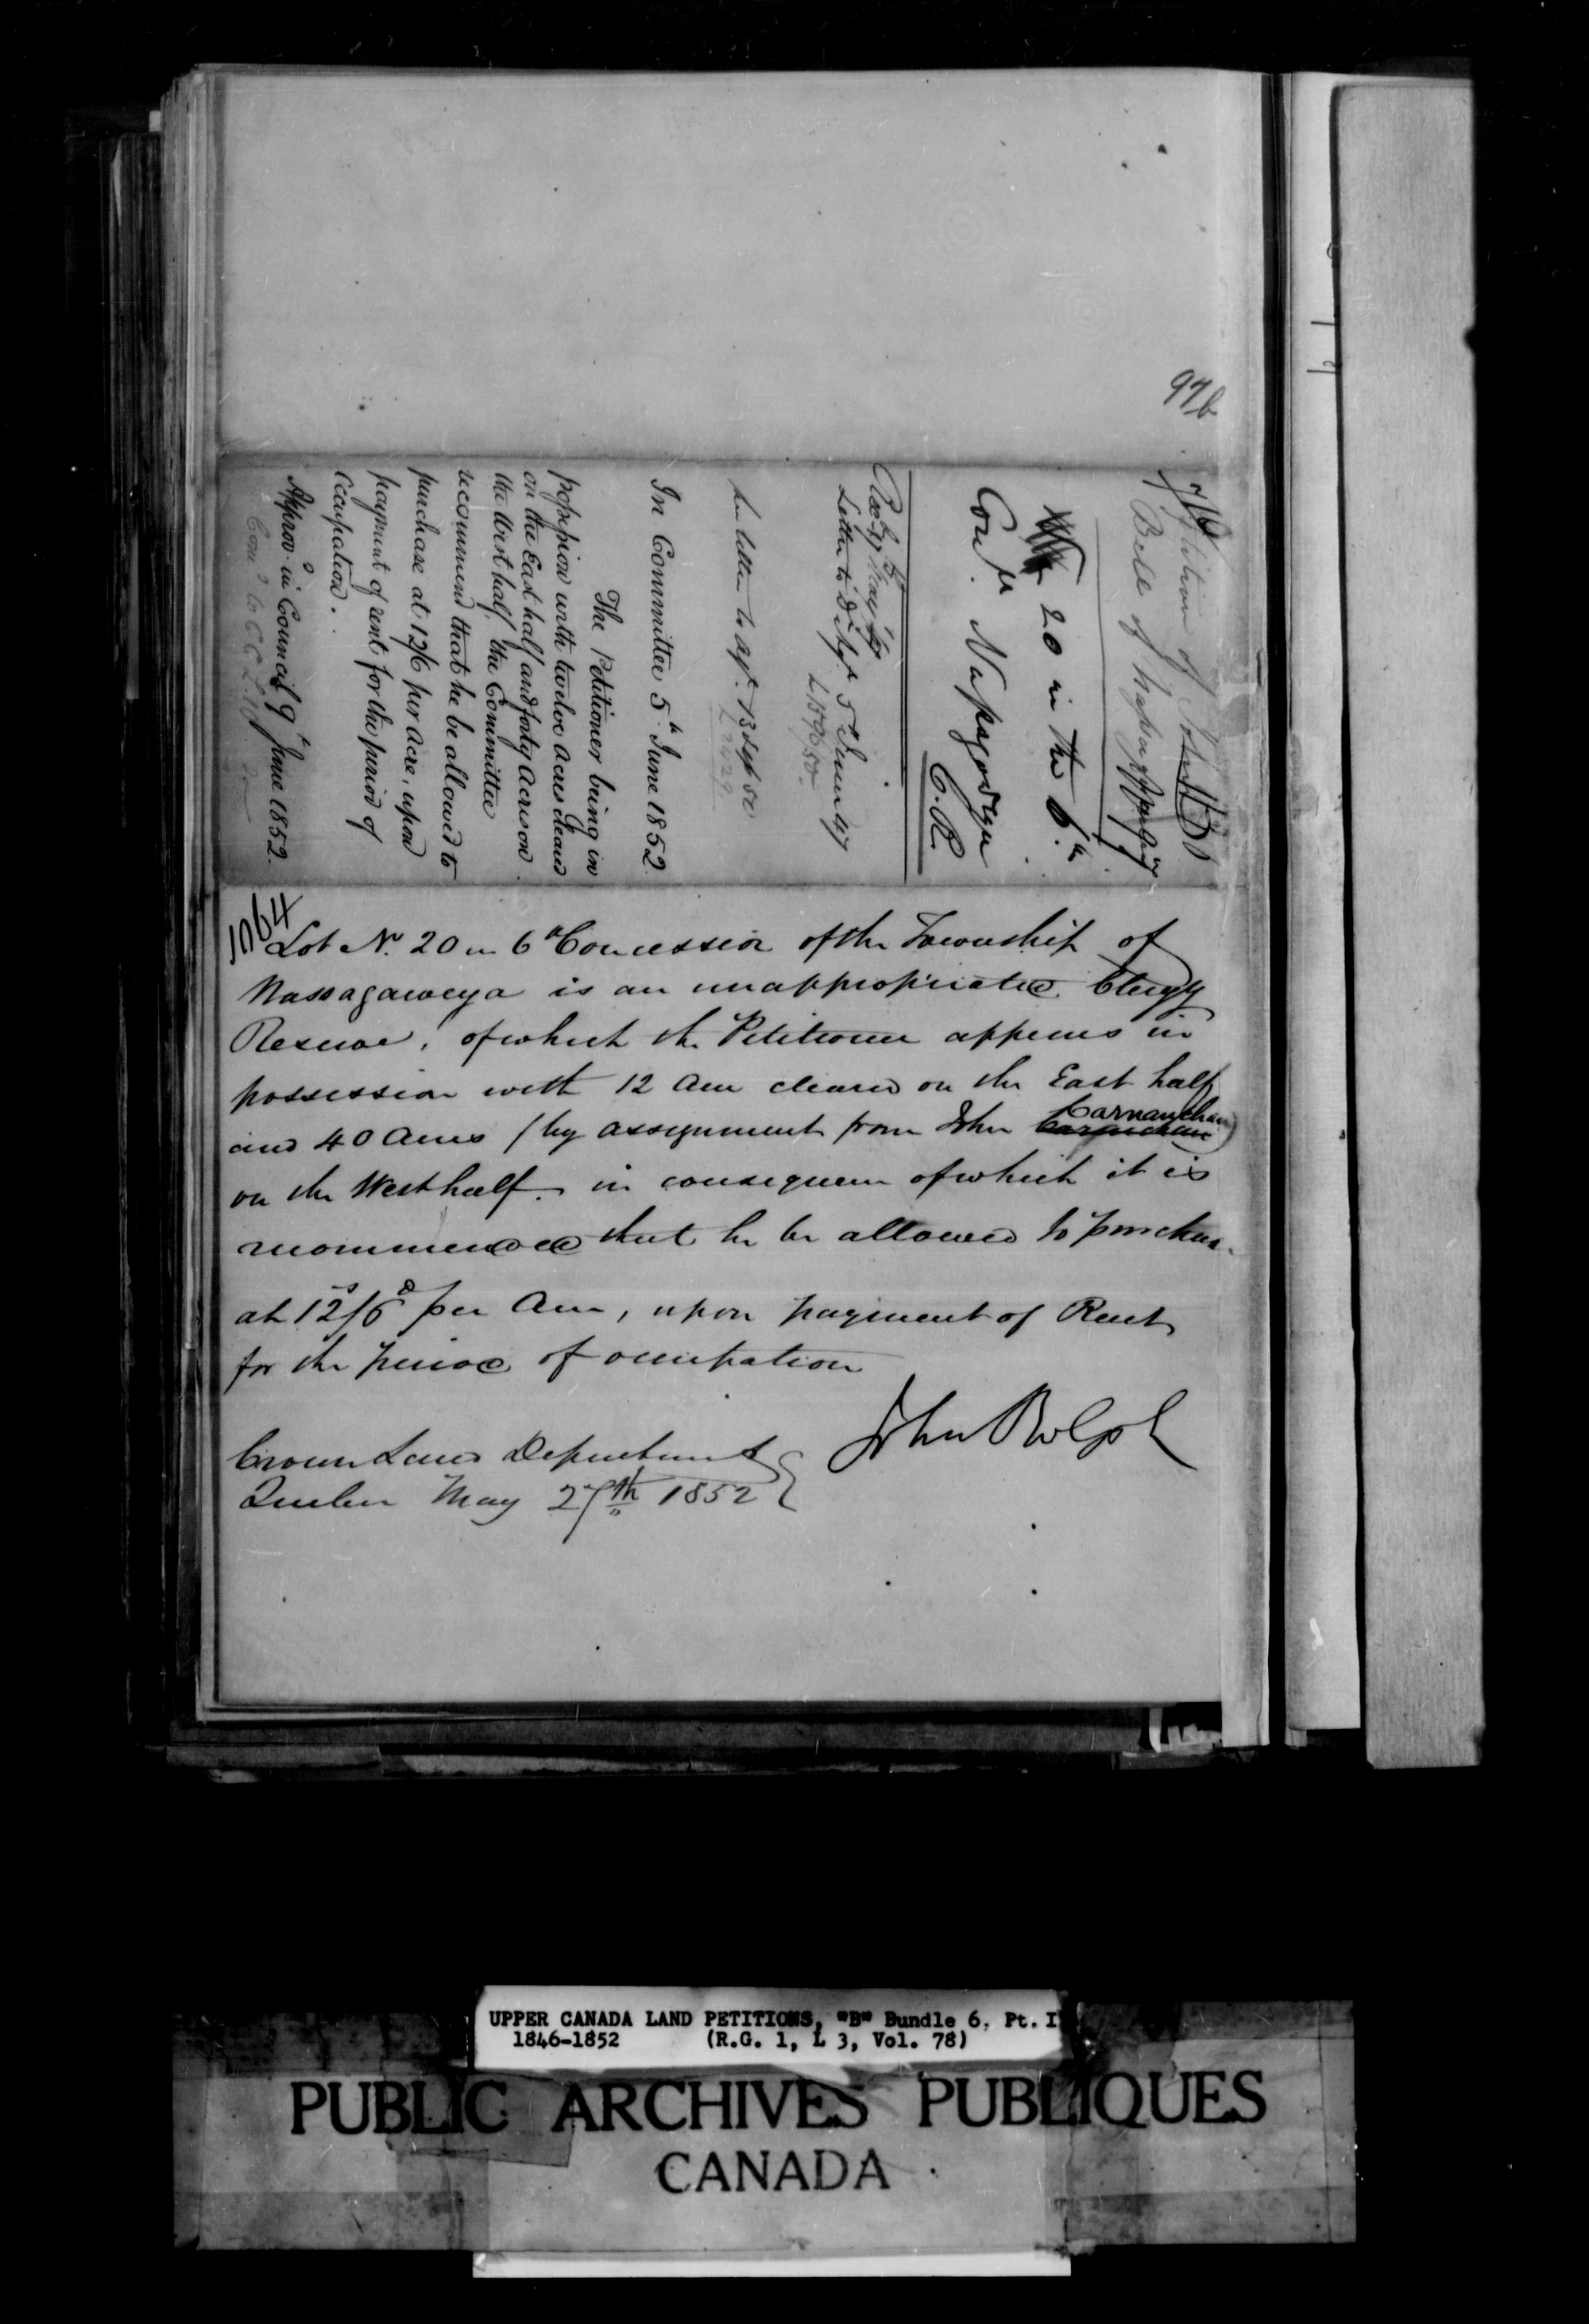 97b
Petition of John
Bell of Nassagaweya
20 in the 6.th
Con.n Nassagaweya
C.R.
Letter to D. Agt 5 June 47
In letter to agt. 13 Sep 50
In Committee 5.th June 1852.
The Petitioner being in
possession with twelve Acres cleared
on the East half and forty Acres on
the West half, the Committee
recommend that he be allowed to
purchase at 12/6 per Acre, upon
payment of rent for the period of
Occupation.
Approv.d in Council 9.th June 1852.
1064
Lot No. 20 in 6th Concession of the Township of
Nassagaweya is an unappropriated Clergy
Reserve, of which the Petitioner appears in
possession with 12 Acres cleared on the East half
and 40 Acres (by assignment from John Carnanchan)
on the West half. in consequence of which it is
recommended that he be allowed to purchase
at 12s/6d per Acre, upon payment of Rent
for the period of occupation
John Rolph
Crown Land Department
Quebec May 27th 1852
UPPER CANADA LAND PETITIONS, "B" Bundle 6, Pt. I
1846-1852 (R.G. 1, L 3, Vol. 78)
PUBLIC ARCHIVES PUBLIQUES
CANADA